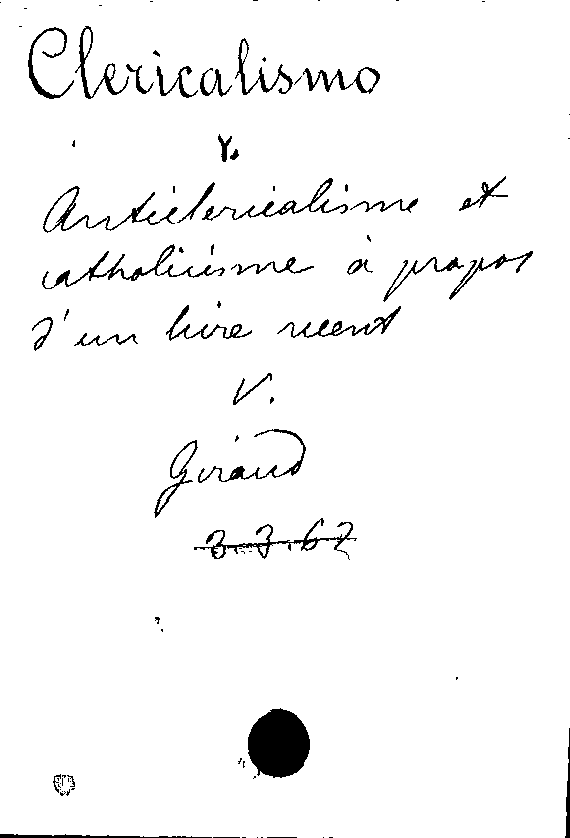 Clericalismo
V.
Anticlericalisme et
catholicisme à propos
d'un livre récent
V.
Giraud
3.3.62